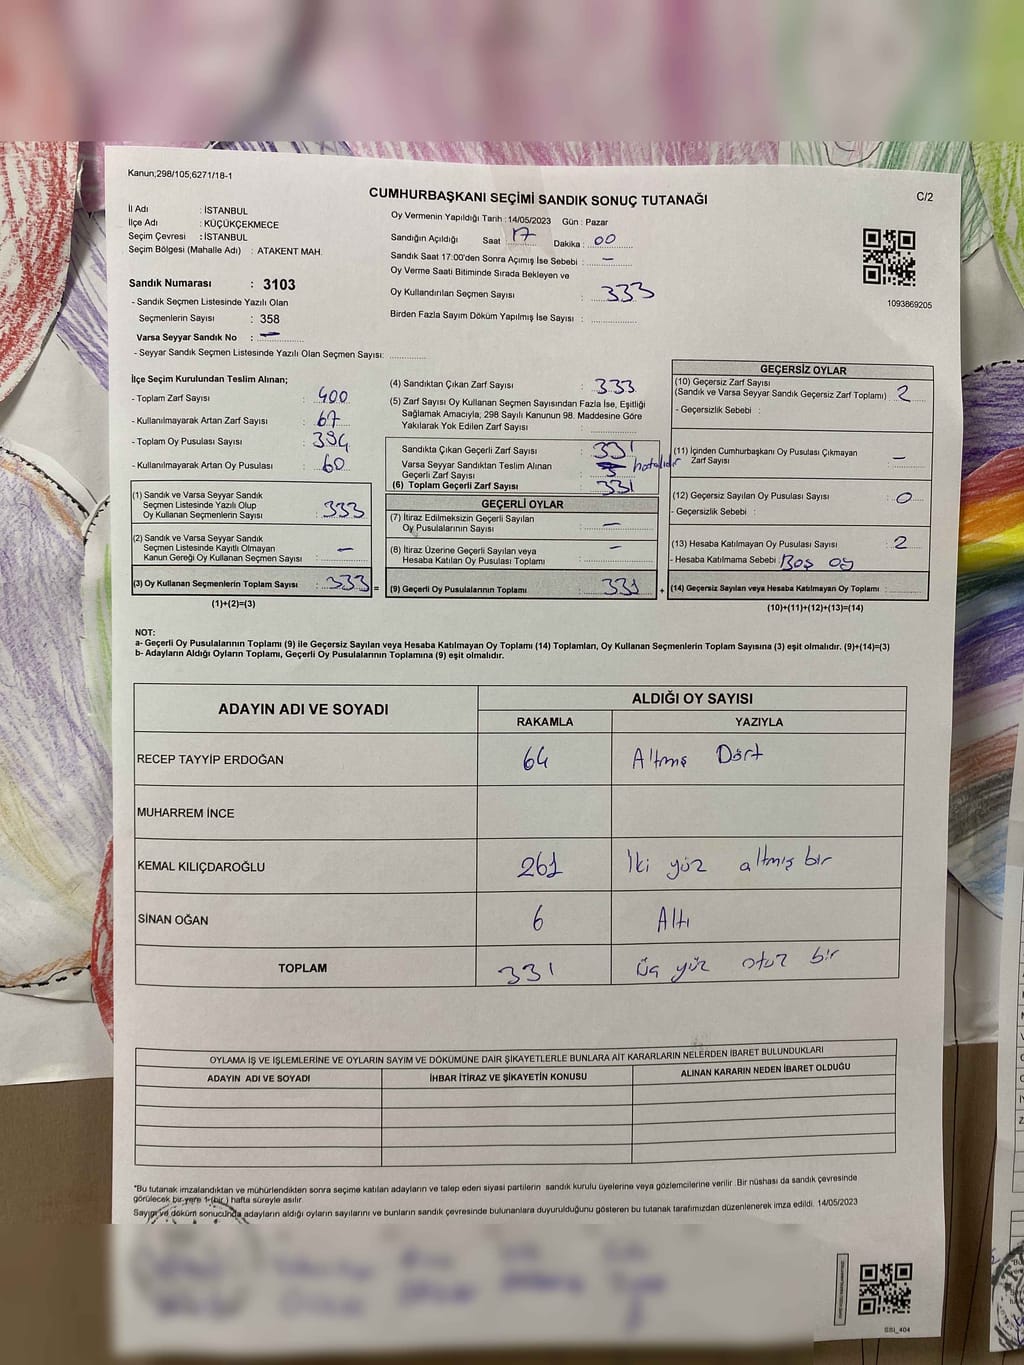 Kanun;298/105;6271/18-1
CUMHURBAŞKANI SEÇİMİ SANDIK SONUÇ TUTANAĞI
C/2
İl Adı : İSTANBUL
İlçe Adı : KÜÇÜKÇEKMECE
Seçim Çevresi : İSTANBUL
Seçim Bölgesi (Mahalle Adı) : ATAKENT MAH.
Oy Vermenin Yapıldığı Tarih : 14/05/2023 Gün : Pazar
Sandığın Açıldığı Saat 17 Dakika : 00
Sandık Saat 17:00'den Sonra Açımış İse Sebebi : -
Oy Verme Saati Bitiminde Sırada Bekleyen ve
Oy Kullandırılan Seçmen Sayısı : 333
Birden Fazla Sayım Döküm Yapılmış İse Sayısı :
1093869205
Sandık Numarası : 3103
- Sandık Seçmen Listesinde Yazılı Olan
Seçmenlerin Sayısı : 358
Varsa Seyyar Sandık No : -
- Seyyar Sandık Seçmen Listesinde Yazılı Olan Seçmen Sayısı:
İlçe Seçim Kurulundan Teslim Alınan;
- Toplam Zarf Sayısı : 400
- Kullanılmayarak Artan Zarf Sayısı : 67
- Toplam Oy Pusulası Sayısı : 394
- Kullanılmayarak Artan Oy Pusulası : 60
(1) Sandık ve Varsa Seyyar Sandık
Seçmen Listesinde Yazılı Olup
Oy Kullanan Seçmenlerin Sayısı : 333
(2) Sandık ve Varsa Seyyar Sandık
Seçmen Listesinde Kayıtlı Olmayan
Kanun Gereği Oy Kullanan Seçmen Sayısı : -
(3) Oy Kullanan Seçmenlerin Toplam Sayısı : 333 =
(1)+(2)=(3)
(4) Sandıktan Çıkan Zarf Sayısı : 333
(5) Zarf Sayısı Oy Kullanan Seçmen Sayısından Fazla İse, Eşitliği
Sağlamak Amacıyla; 298 Sayılı Kanunun 98. Maddesine Göre
Yakılarak Yok Edilen Zarf Sayısı :
Sandıkta Çıkan Geçerli Zarf Sayısı : 331
Varsa Seyyar Sandıktan Teslim Alınan
Geçerli Zarf Sayısı : hatalıdır
(6) Toplam Geçerli Zarf Sayısı : 331
GEÇERLİ OYLAR
(7) İtiraz Edilmeksizin Geçerli Sayılan
Oy Pusulalarının Sayısı : -
(8) İtiraz Üzerine Geçerli Sayılan veya
Hesaba Katılan Oy Pusulası Toplamı : -
(9) Geçerli Oy Pusulalarının Toplamı : 331 +
GEÇERSİZ OYLAR
(10) Geçersiz Zarf Sayısı
(Sandık ve Varsa Seyyar Sandık Geçersiz Zarf Toplamı) : 2
- Geçersizlik Sebebi :
(11) İçinden Cumhurbaşkanı Oy Pusulası Çıkmayan
Zarf Sayısı : -
(12) Geçersiz Sayılan Oy Pusulası Sayısı : 0
- Geçersizlik Sebebi :
(13) Hesaba Katılmayan Oy Pusulası Sayısı : 2
- Hesaba Katılmama Sebebi : Boş oy
(14) Geçersiz Sayılan veya Hesaba Katılmayan Oy Toplamı :
(10)+(11)+(12)+(13)=(14)
NOT:
a- Geçerli Oy Pusulalarının Toplamı (9) ile Geçersiz Sayılan veya Hesaba Katılmayan Oy Toplamı (14) Toplamları, Oy Kullanan Seçmenlerin Toplam Sayısına (3) eşit olmalıdır. (9)+(14)=(3)
b- Adayların Aldığı Oyların Toplamı, Geçerli Oy Pusulalarının Toplamına (9) eşit olmalıdır.
ADAYIN ADI VE SOYADI
ALDIĞI OY SAYISI
RAKAMLA YAZIYLA
RECEP TAYYİP ERDOĞAN 64 Altmış Dört
MUHARREM İNCE
KEMAL KILIÇDAROĞLU 261 İki yüz altmış bir
SİNAN OĞAN 6 Altı
TOPLAM 331 üç yüz otuz bir
OYLAMA İŞ VE İŞLEMLERİNE VE OYLARIN SAYIM VE DÖKÜMÜNE DAİR ŞİKAYETLERLE BUNLARA AİT KARARLARIN NELERDEN İBARET BULUNDUKLARI
ADAYIN ADI VE SOYADI İHBAR İTİRAZ VE ŞİKAYETİN KONUSU ALINAN KARARIN NEDEN İBARET OLDUĞU
*Bu tutanak imzalandıktan ve mühürlendikten sonra seçime katılan adayların ve talep eden siyasi partilerin sandık kurulu üyelerine veya gözlemcilerine verilir. Bir nüshası da sandık çevresinde
görülecek bir yere 1 (bir) hafta süreyle asılır.
Sayım ve döküm sonucunda adayların aldığı oyların sayılarını ve bunların sandık çevresinde bulunanlara duyurulduğunu gösteren bu tutanak tarafımızdan düzenlenerek imza edildi. 14/05/2023
SSI_404